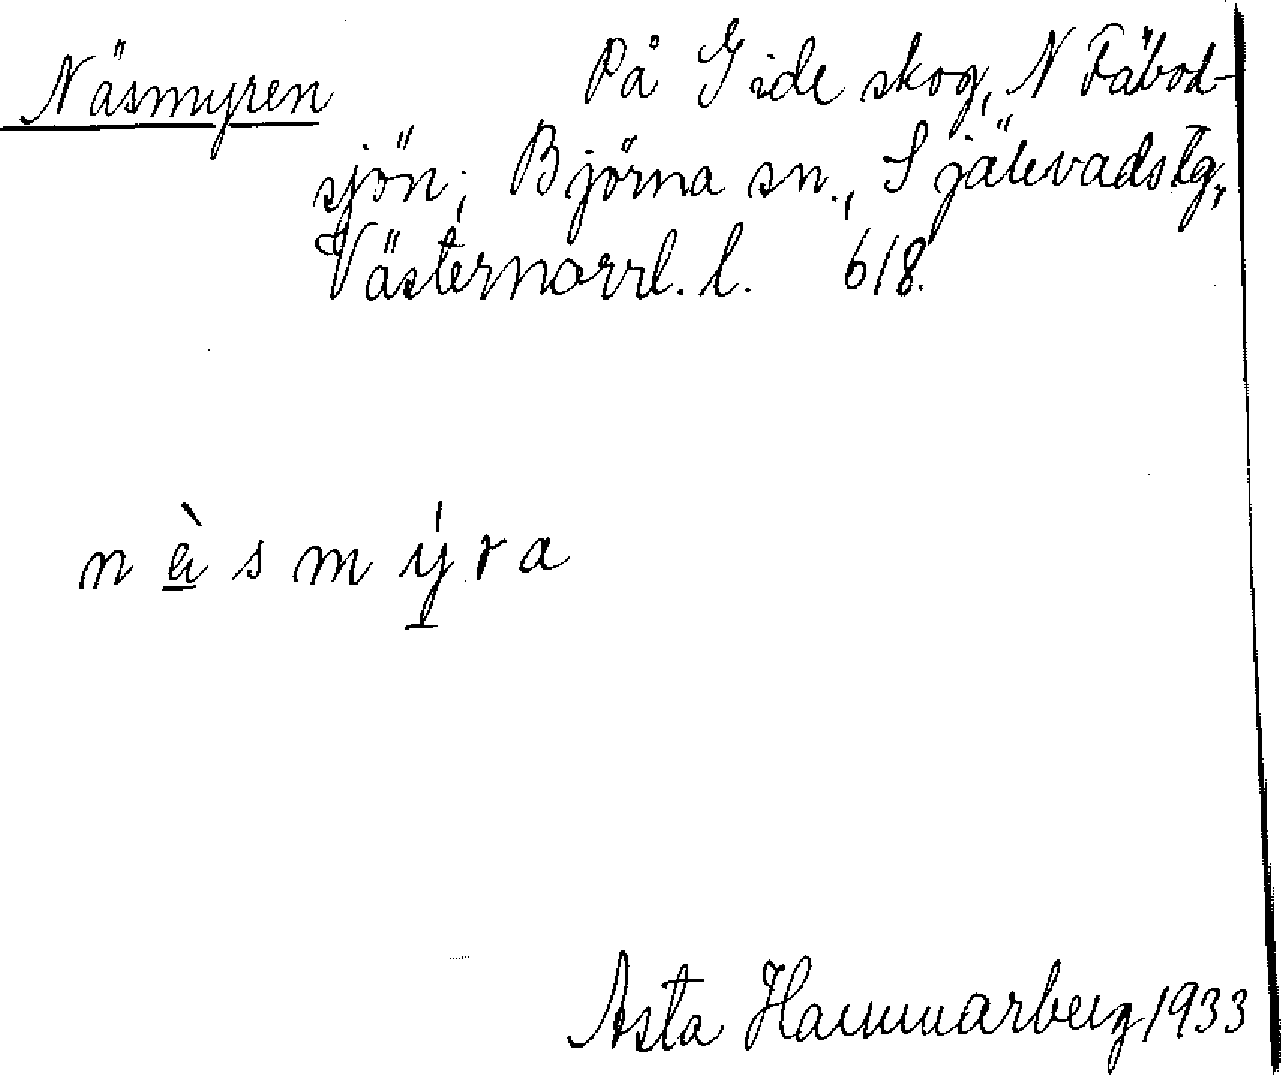 Näsmyren På Gide skog, N Fäbod-
sjön, Björna sn., Själevads tg,
Västernorrl. l. 618.
nä̀smýra
Asta Hammarberg 1933